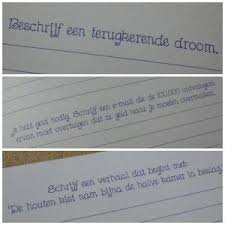 Beschrijf een terugkerende droom.
Je hebt geld nodig. Schrijf een e-mail die de 100.000 ontvangers
ervan moet overtuigen dat ze geld naar je moeten overmaken.
Schrijf een verhaal dat begint met:
'De houten kist nam bijna de halve kamer in beslag.